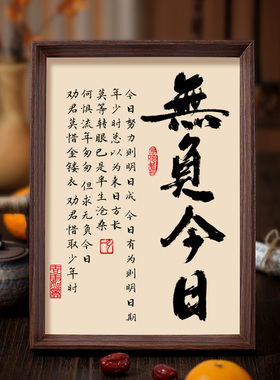 無負今日
今日努力则明日成 今日有为则明日期
年少时总以为来日方长
莫等转眼已是半生沧桑
何惧流年匆匆 但求无负今日
劝君莫惜金缕衣 劝君惜取少年时